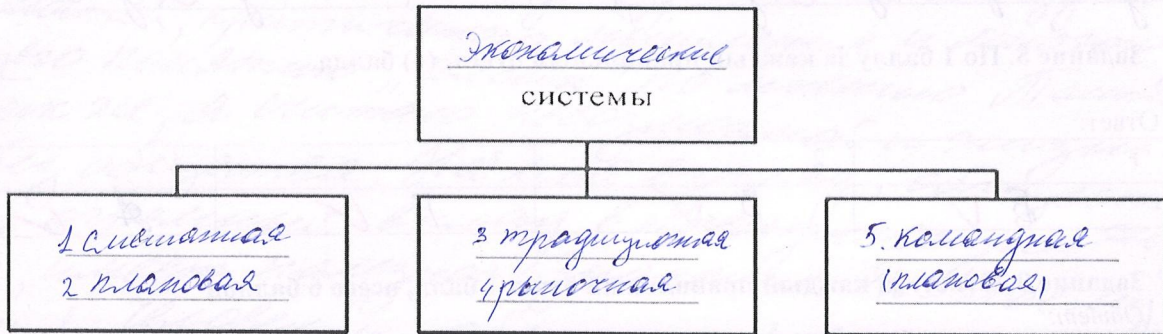 Экономические
системы
1 смешанная
2 плановая
3 традиционная
4 рыночная
5. командная
(плановая)